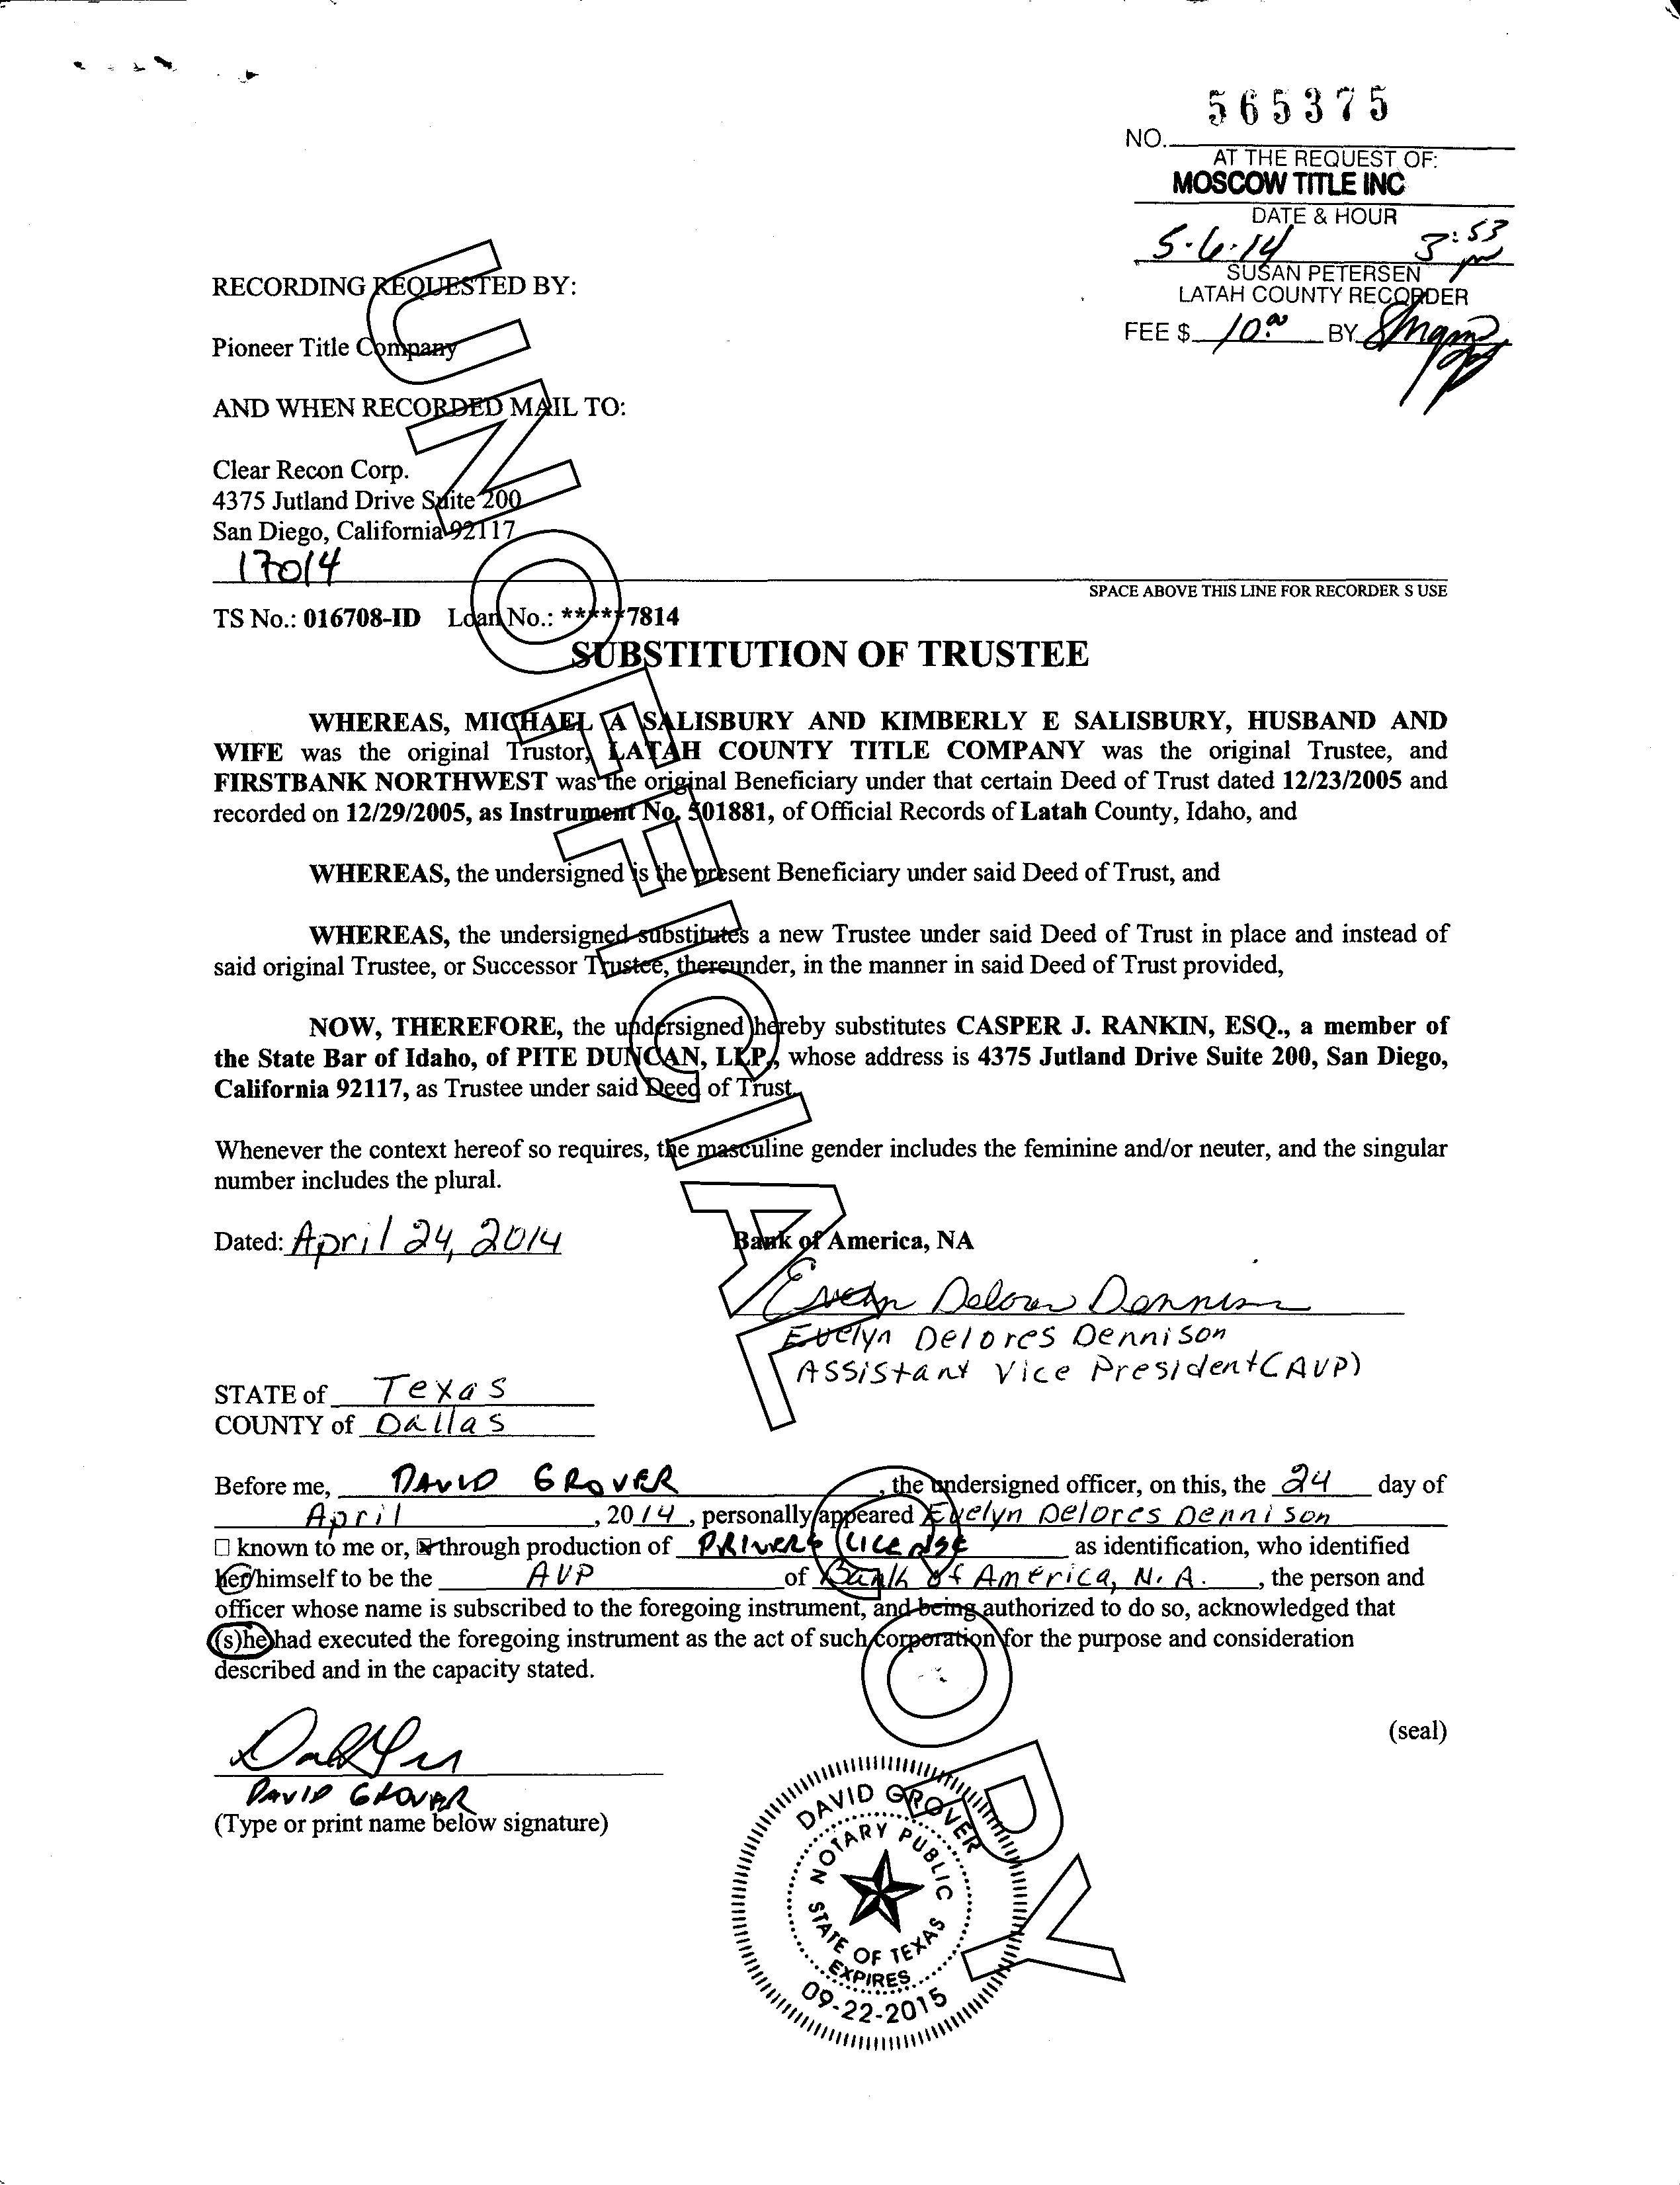 565375
NO.
AT THE REQUEST OF:
MOSCOW TITLE INC
DATE & HOUR
5-6-14 3:53 pm
SUSAN PETERSEN
LATAH COUNTY RECORDER
FEE $ 10.00 BY
RECORDING REQUESTED BY:
Pioneer Title Company
AND WHEN RECORDED MAIL TO:
Clear Recon Corp.
4375 Jutland Drive Suite 200
San Diego, California 92117
17014
SPACE ABOVE THIS LINE FOR RECORDER S USE
TS No.: 016708-ID Loan No.: *****7814
SUBSTITUTION OF TRUSTEE
WHEREAS, MICHAEL A SALISBURY AND KIMBERLY E SALISBURY, HUSBAND AND
WIFE was the original Trustor, LATAH COUNTY TITLE COMPANY was the original Trustee, and
FIRSTBANK NORTHWEST was the original Beneficiary under that certain Deed of Trust dated 12/23/2005 and
recorded on 12/29/2005, as Instrument No. 501881, of Official Records of Latah County, Idaho, and
WHEREAS, the undersigned is the present Beneficiary under said Deed of Trust, and
WHEREAS, the undersigned substitutes a new Trustee under said Deed of Trust in place and instead of
said original Trustee, or Successor Trustee, thereunder, in the manner in said Deed of Trust provided,
NOW, THEREFORE, the undersigned hereby substitutes CASPER J. RANKIN, ESQ., a member of
the State Bar of Idaho, of PITE DUNCAN, LLP, whose address is 4375 Jutland Drive Suite 200, San Diego,
California 92117, as Trustee under said Deed of Trust.
Whenever the context hereof so requires, the masculine gender includes the feminine and/or neuter, and the singular
number includes the plural.
Dated: April 24, 2014 Bank of America, NA
Evelyn Delores Dennison
Evelyn Delores Dennison
Assistant Vice President (AVP)
STATE of Texas
COUNTY of Dallas
Before me, DAVID GROVER, the undersigned officer, on this, the 24 day of
April, 2014, personally appeared Evelyn Delores Dennison
☐ known to me or, ☒ through production of DRIVERS LICENSE as identification, who identified
her/himself to be the AVP of Bank of America, N.A., the person and
officer whose name is subscribed to the foregoing instrument, and being authorized to do so, acknowledged that
(s)he had executed the foregoing instrument as the act of such corporation for the purpose and consideration
described and in the capacity stated.
(seal)
DAVID GROVER
(Type or print name below signature)
DAVID GROVER
NOTARY PUBLIC
STATE OF TEXAS
EXPIRES
09-22-2015
UNOFFICIAL COPY